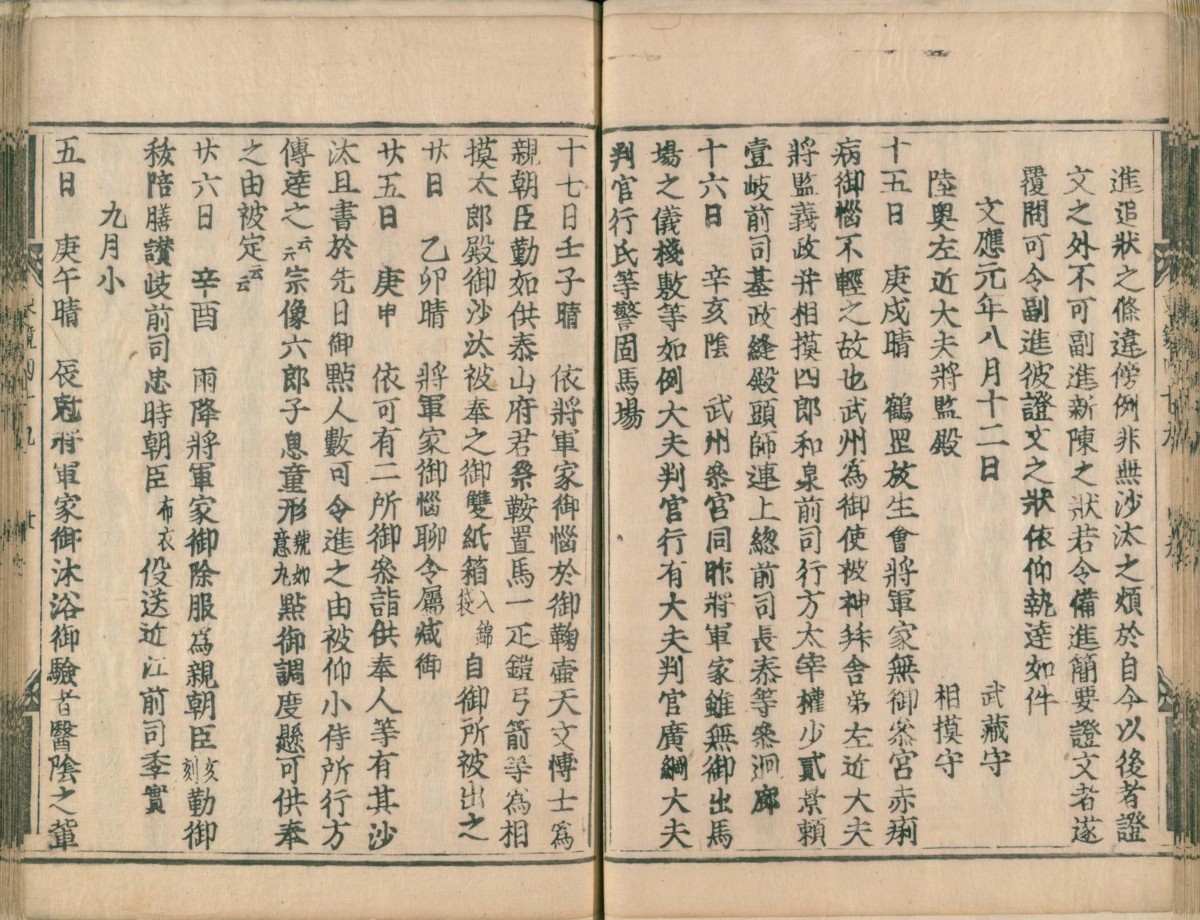 進追狀之條違傍例非無沙汰之煩於自今以後者證
文之外不可副進新陳之狀若令備進簡要證文者遂
覆問可令副進彼證文之狀依仰執達如件
文應元年八月十二日　武藏守
陸奥左近大夫將監殿　相摸守
十五日　庚戌晴　鶴罡放生會將軍家無御叅宮赤痢
病御惱不輕之故也武州為御使被神拜舎弟左近大夫
將監義政并相摸四郎和泉前司行方太宰權少貳景頼
壹岐前司基政縫殿頭師連上緫前司長泰等叅迴廊
十六日　辛亥陰　武州叅宮同昨將軍家雖無御出馬
場之儀棧敷等如例大夫判官行有大夫判官廣綱大夫
判官行氏等警固馬場
十七日壬子晴　依將軍家御惱於御鞠壺天文博士爲
親朝臣勤如供泰山府君祭鞍置馬一疋鎧弓箭等為相
摸太郎殿御沙汰被奉之御雙紙箱入錦袋自御所被出之
廿日　乙卯晴　將軍家御惱聊令属减御
廿五日　庚申　依可有二所御叅詣供奉人等有其沙
汰且書於先日御點人數可令進之由被仰小侍所行方
傳達之云云宗像六郎子息童形號如意九點御調度懸可供奉
之由被定云云
廿六日　辛酉　雨降將軍家御除服爲親朝臣亥刻勤御
秡陪膳讃岐前司忠時朝臣布衣役送近江前司季實
九月小
五日　庚午晴　辰尅將軍家御沐浴御驗者醫陰之輩